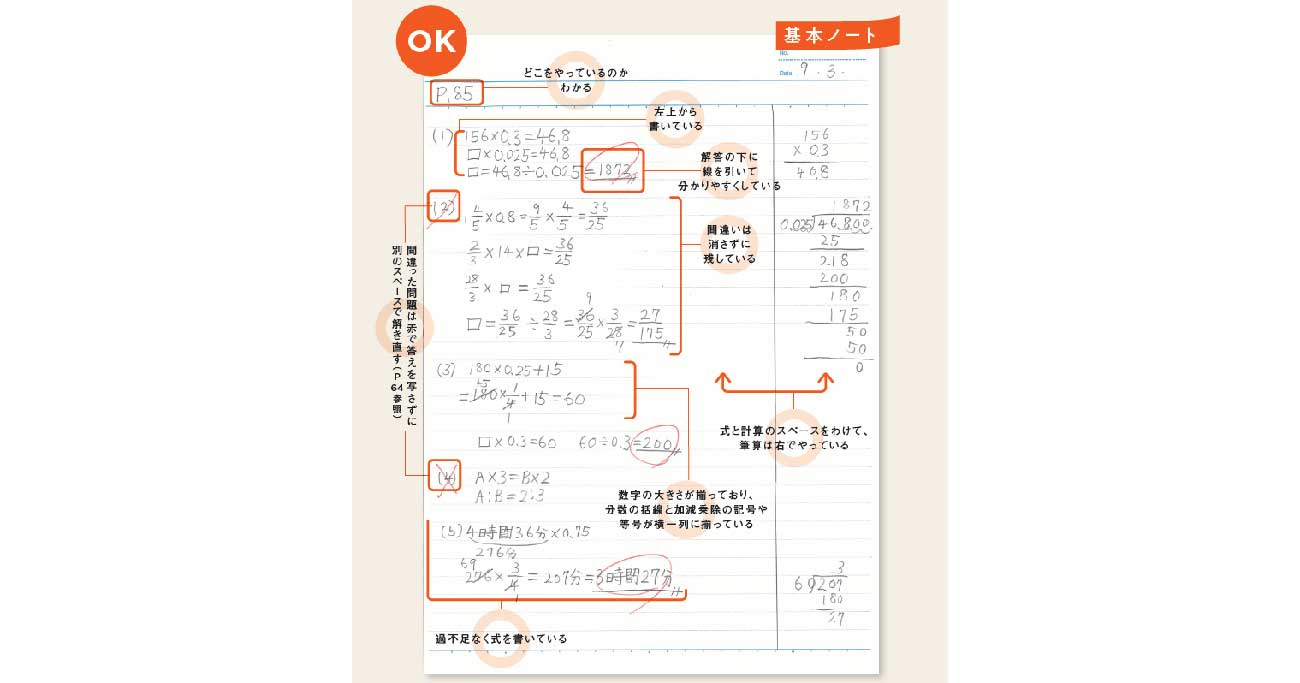 OK
基本ノート
No.
Date 9.3.
どこをやっているのか
わかる
P.85
左上から
書いている
(1) 156×0.3=46.8
□×0.025=46.8
□=46.8÷0.025=1872
解答の下に
線を引いて
分かりやすくしている
156
×0.3
46.8
(2) 1 4/5×0.8=9/5×4/5=36/25
2/3×14×□=36/25
28/3×□=36/25
□=36/25÷28/3=36/25×3/28=27/175
9
7
間違いは
消さずに
残している
1872
0.025)46.800
25
218
200
180
175
50
50
0
間違った問題は赤で答えを写さずに
別のスペースで解き直す(P64参照)
(3) 180×0.25+15
45
=180×1/4+15=60
1
□×0.3=60 60÷0.3=200
式と計算のスペースをわけて、
筆算は右でやっている
(4) A×3=B×2
A:B=2:3
数字の大きさが揃っており、
分数の括線と加減乗除の記号や
等号が横一列に揃っている
(5) 4時間36分×0.75
276分
69
276×3/4=207分=3時間27分
1
3
60)207
180
27
過不足なく式を書いている